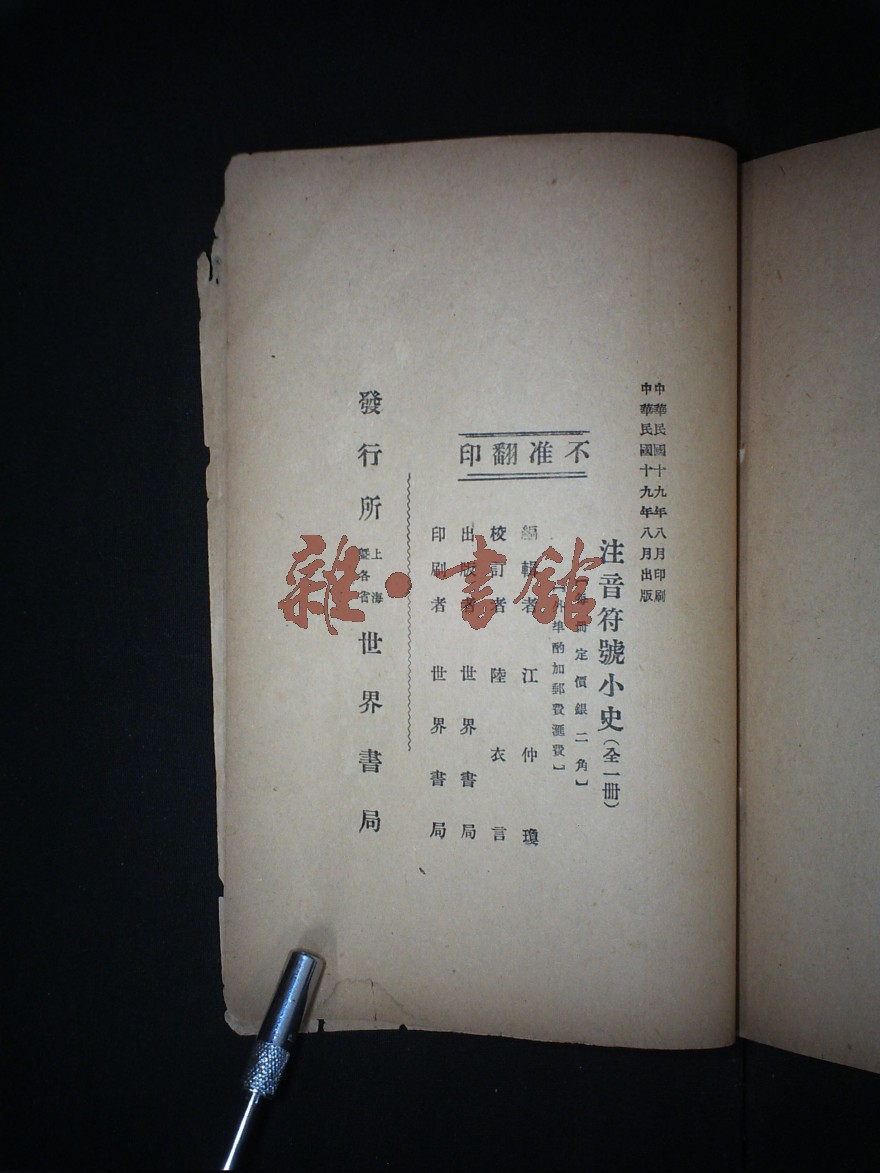 中華民國十九年八月印刷
中華民國十九年八月出版
注音符號小史(全一冊)
定價銀二角】
外埠酌加郵費滙費】
不准翻印
編輯者 江仲瓊
校訂者 陸衣言
出版者 世界書局
印刷者 世界書局
發行所 上海曁各省 世界書局
雜·書館